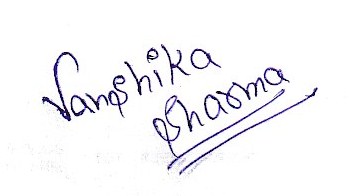 Vanshika
Sharma